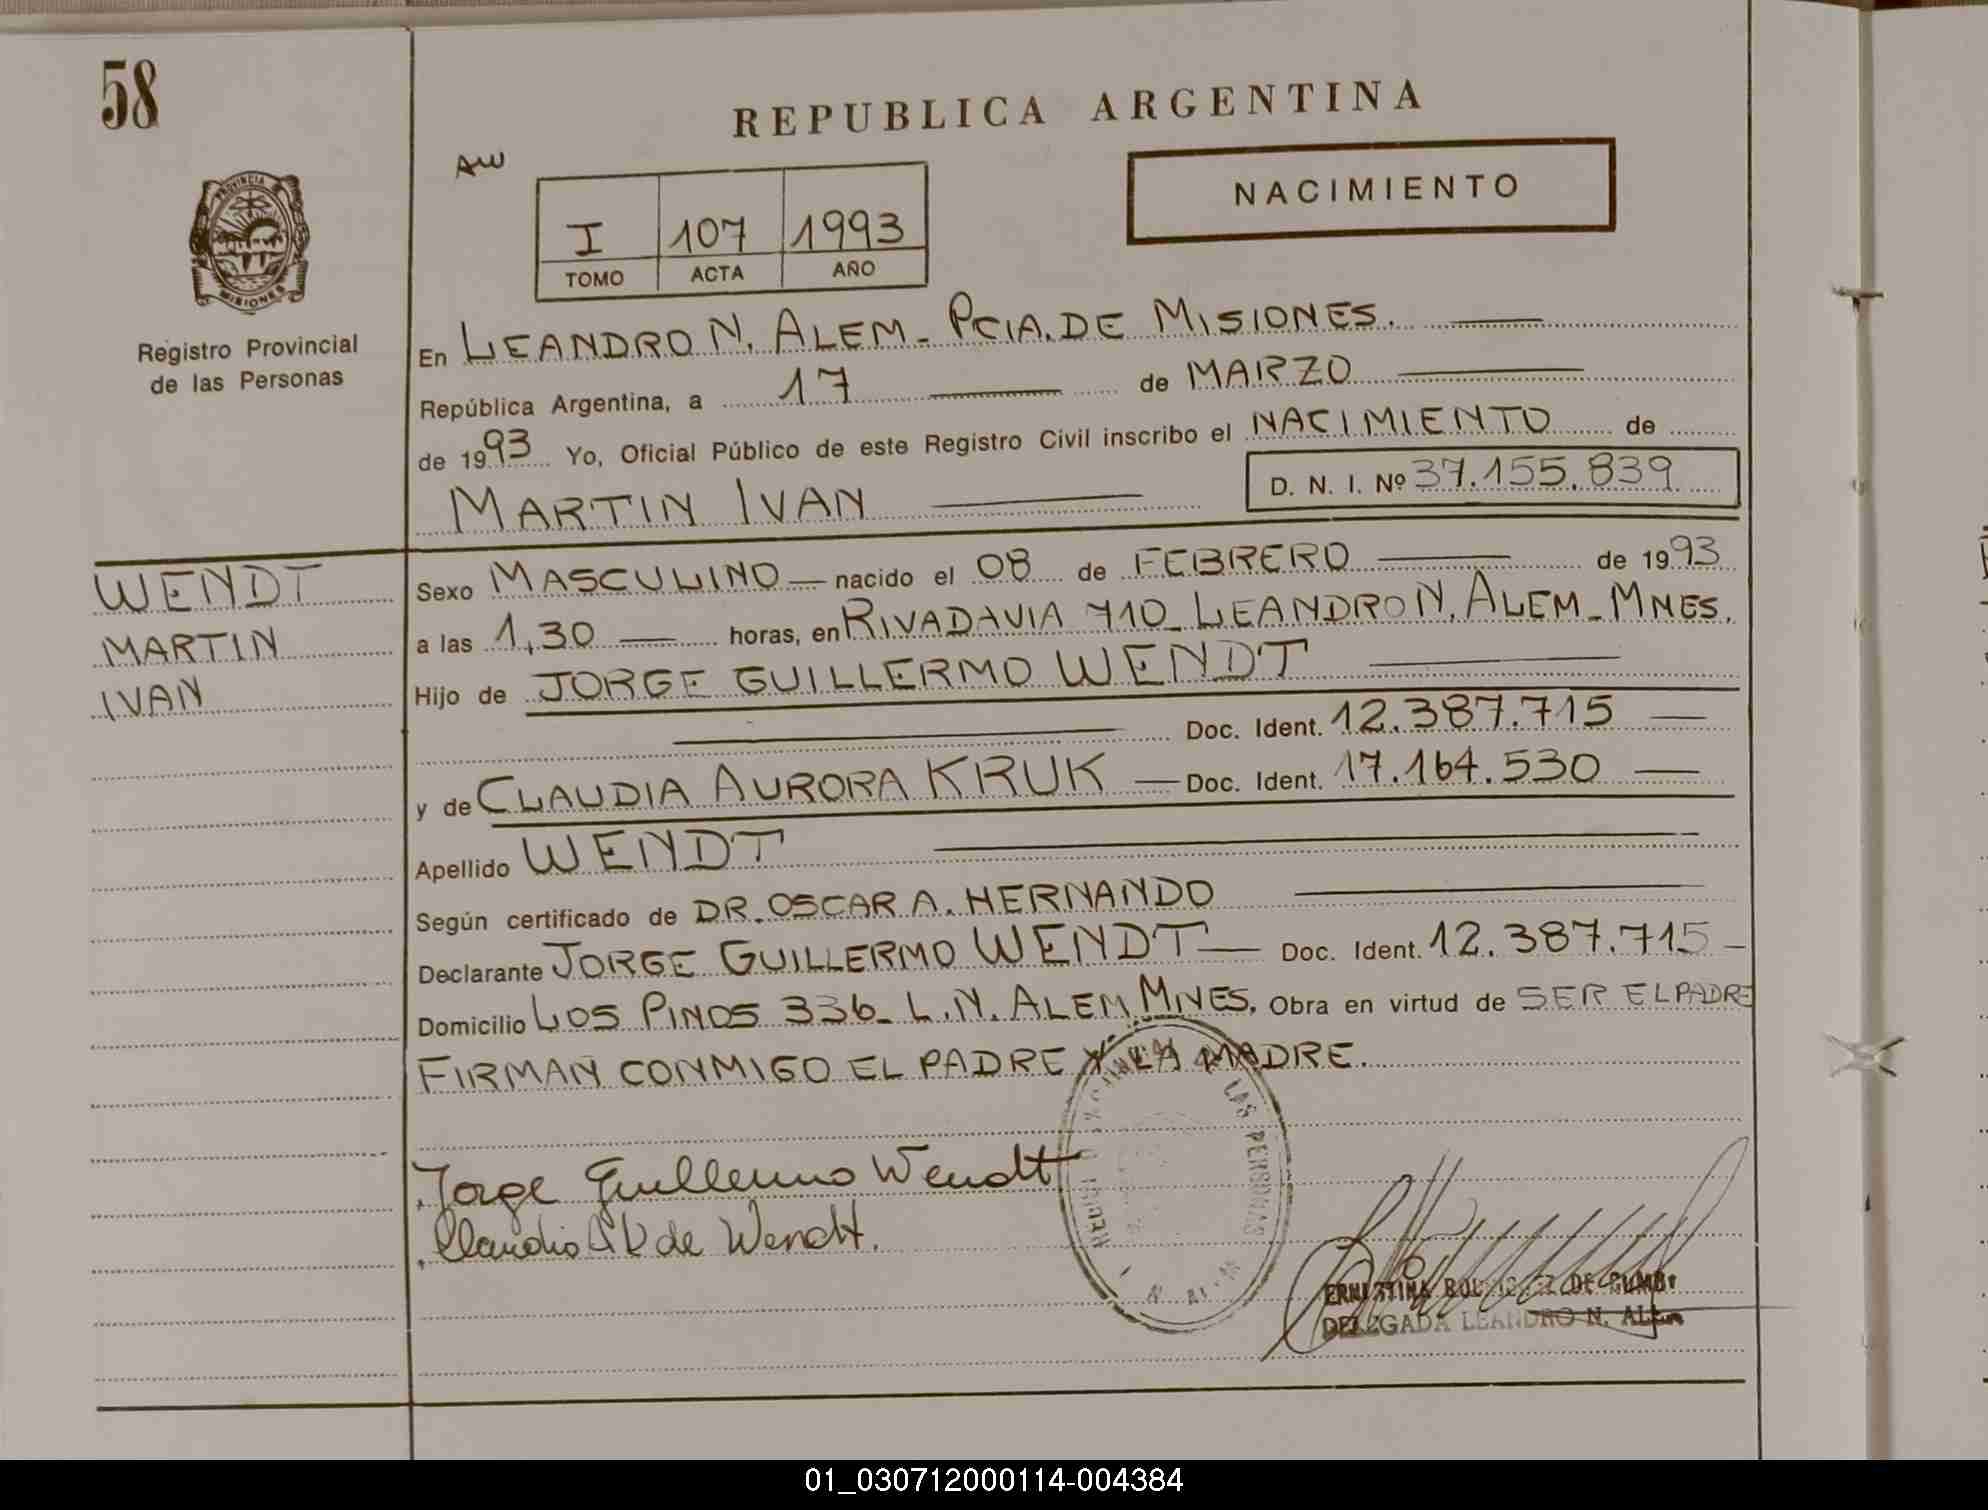 58
REPUBLICA ARGENTINA
AW
NACIMIENTO
I 107 1993
TOMO ACTA AÑO
PROVINCIA
MISIONES
Registro Provincial
de las Personas
En LEANDRO N. ALEM - PCIA. DE MISIONES.
República Argentina, a 17 de MARZO
de 1993 Yo, Oficial Público de este Registro Civil inscribo el NACIMIENTO de
D. N. I. Nº 37.155.839
MARTIN IVAN
WENDT
MARTIN
IVAN
Sexo MASCULINO nacido el 08 de FEBRERO de 1993
a las 1,30 horas, en RIVADAVIA 710 - LEANDRO N. ALEM - MNES.
Hijo de JORGE GUILLERMO WENDT
Doc. Ident. 12.387.715
y de CLAUDIA AURORA KRUK Doc. Ident. 17.164.530
Apellido WENDT
Según certificado de DR. OSCAR A. HERNANDO
Declarante JORGE GUILLERMO WENDT Doc. Ident. 12.387.715
Domicilio LOS PINOS 336 - L.N. ALEM MNES. Obra en virtud de SER EL PADRE
FIRMAN CONMIGO EL PADRE Y LA MADRE.
Jorge Guillermo Wendt
Claudia A K de Wendt.
LAS PERSONAS
DELEGADA LEANDRO N. ALEM
01_030712000114-004384